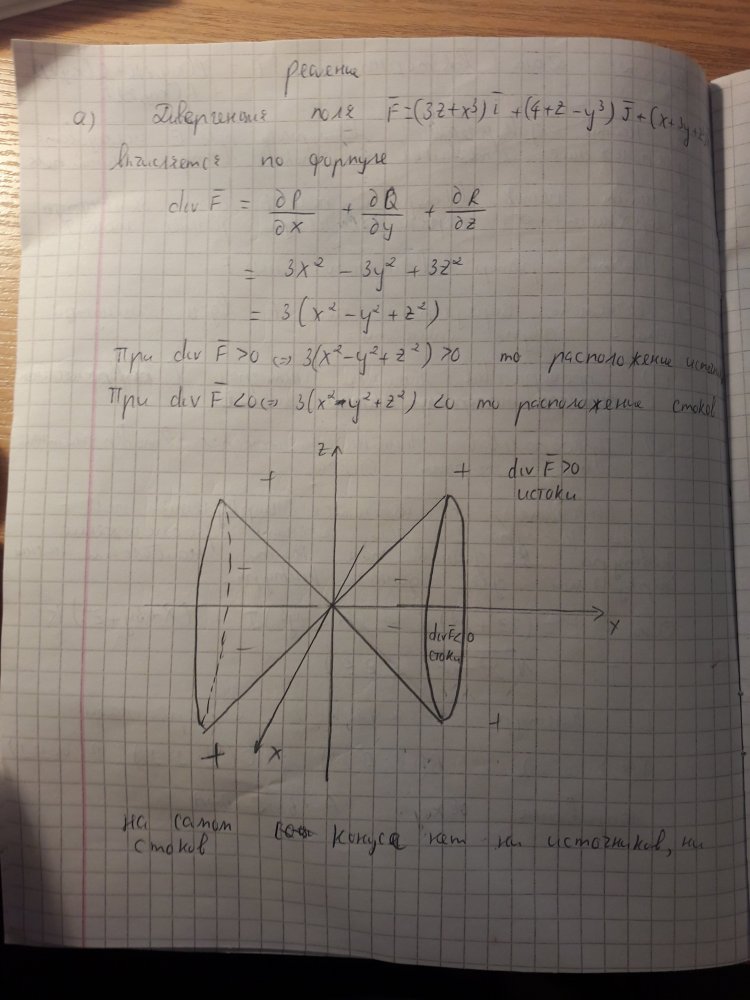 решение
а) Дивергенция поля F̅=(3z+x³) i̅ +(4+z-y³) J̅ + (x+3y+z³)
вычисляется по формуле
div F̅ = ∂P/∂x + ∂Q/∂y + ∂R/∂z
= 3x² - 3y² + 3z²
= 3(x²-y²+z²)
При div F̅>0 ⇔ 3(x²-y²+z²)>0 то расположение
При div F̅<0 ⇔ 3(x²-y²+z²) <0 то расположение стоков
z
+ + div F̅>0
истоки
- -
y
div F̅<0
стоки
- -
+ x +
на самом конуса нет ни источников, ни
стоков